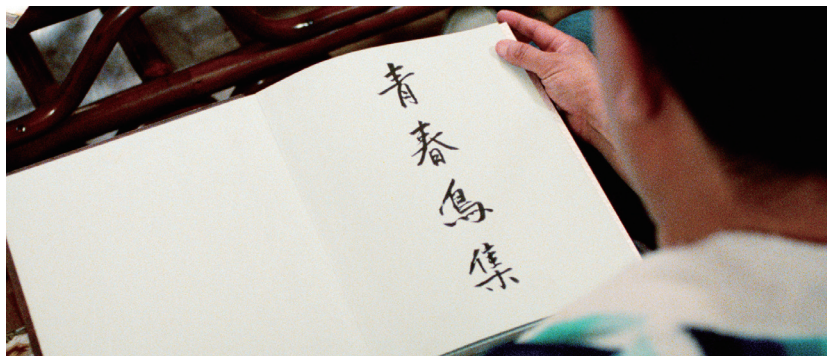 青春鳥集